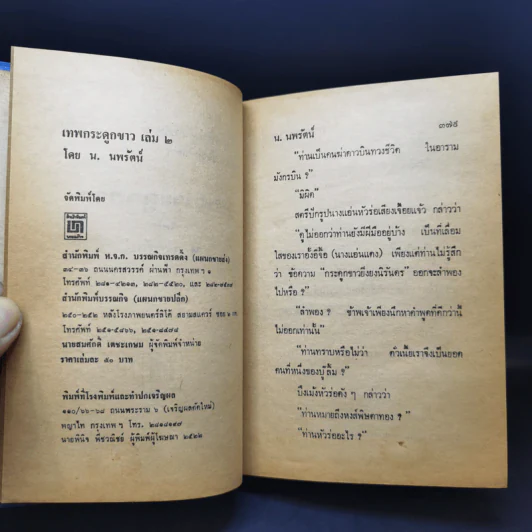 เทพกระดูกขาว เล่ม ๒
โดย น. นพรัตน์
จัดพิมพ์โดย
สำนักพิมพ์ ห.จ.ก. บรรณกิจเทรดดิ้ง (แผนกขายส่ง)
๓๔-๓๖ ถนนนครสวรรค์ ผ่านฟ้า กรุงเทพ ฯ ๑
โทรศัพท์
สำนักพิมพ์บรรณกิจ (แผนกขายปลีก)
๒๕๐-๒๕๒ หลังโรงภาพยนตร์ลิโด้ สยามสแควร์
โทรศัพท์
นายสมศักดิ์ เตชะเกษม ผู้จัดพิมพ์จำหน่าย
ราคาเล่มละ ๓๐ บาท
พิมพ์ที่โรงพิมพ์และทำปกเจริญผล
๑๑๐/๖๖-๖๘ ถนนพระราม ๖ (เจริญผลตัดใหม่)
พญาไท กรุงเทพ ฯ โทร.
นายพินิจ พีชวณิชย์ ผู้พิมพ์ผู้โฆษณา ๒๕๒๒
น. นพรัตน์ ๓๗๕
"ท่านเป็นคนฆ่าดาวบินทวงชีวิต ในอาราม
มังกรบิน ?"
"มิผิด"
สตรีปักรูปนางแอ่นหัวร่อเสียงเจื้อยแจ้ว กล่าวว่า
"ดูไม่ออกว่าท่านยังมีฝีมืออยู่บ้าง เป็นที่เลื่อม
ใสของเรายั้งอี้อิ้ (นางแอ่นแดง) เพียงแต่ท่านไม่รู้สึก
ว่า ข้อความ "กระดูกขาวยั่งยงนิรันดร" ออกจะลำพอง
ไปหรือ ?"
"ลำพอง ? ข้าพเจ้าเพียงนึกหาคำพูดที่ดีกว่านี้
ไม่ออกเท่านั้น"
"ท่านทราบหรือไม่ว่า ตัวเนื้อเราจึงเป็นยอด
คนที่หนึ่งของบู๊ลิ้ม ?"
บึงเม้งหัวร่อดัง ๆ กล่าวว่า
"ท่านหมายถึงหงส์พิษตาทอง ?"
"ท่านหัวร่ออะไร ?"